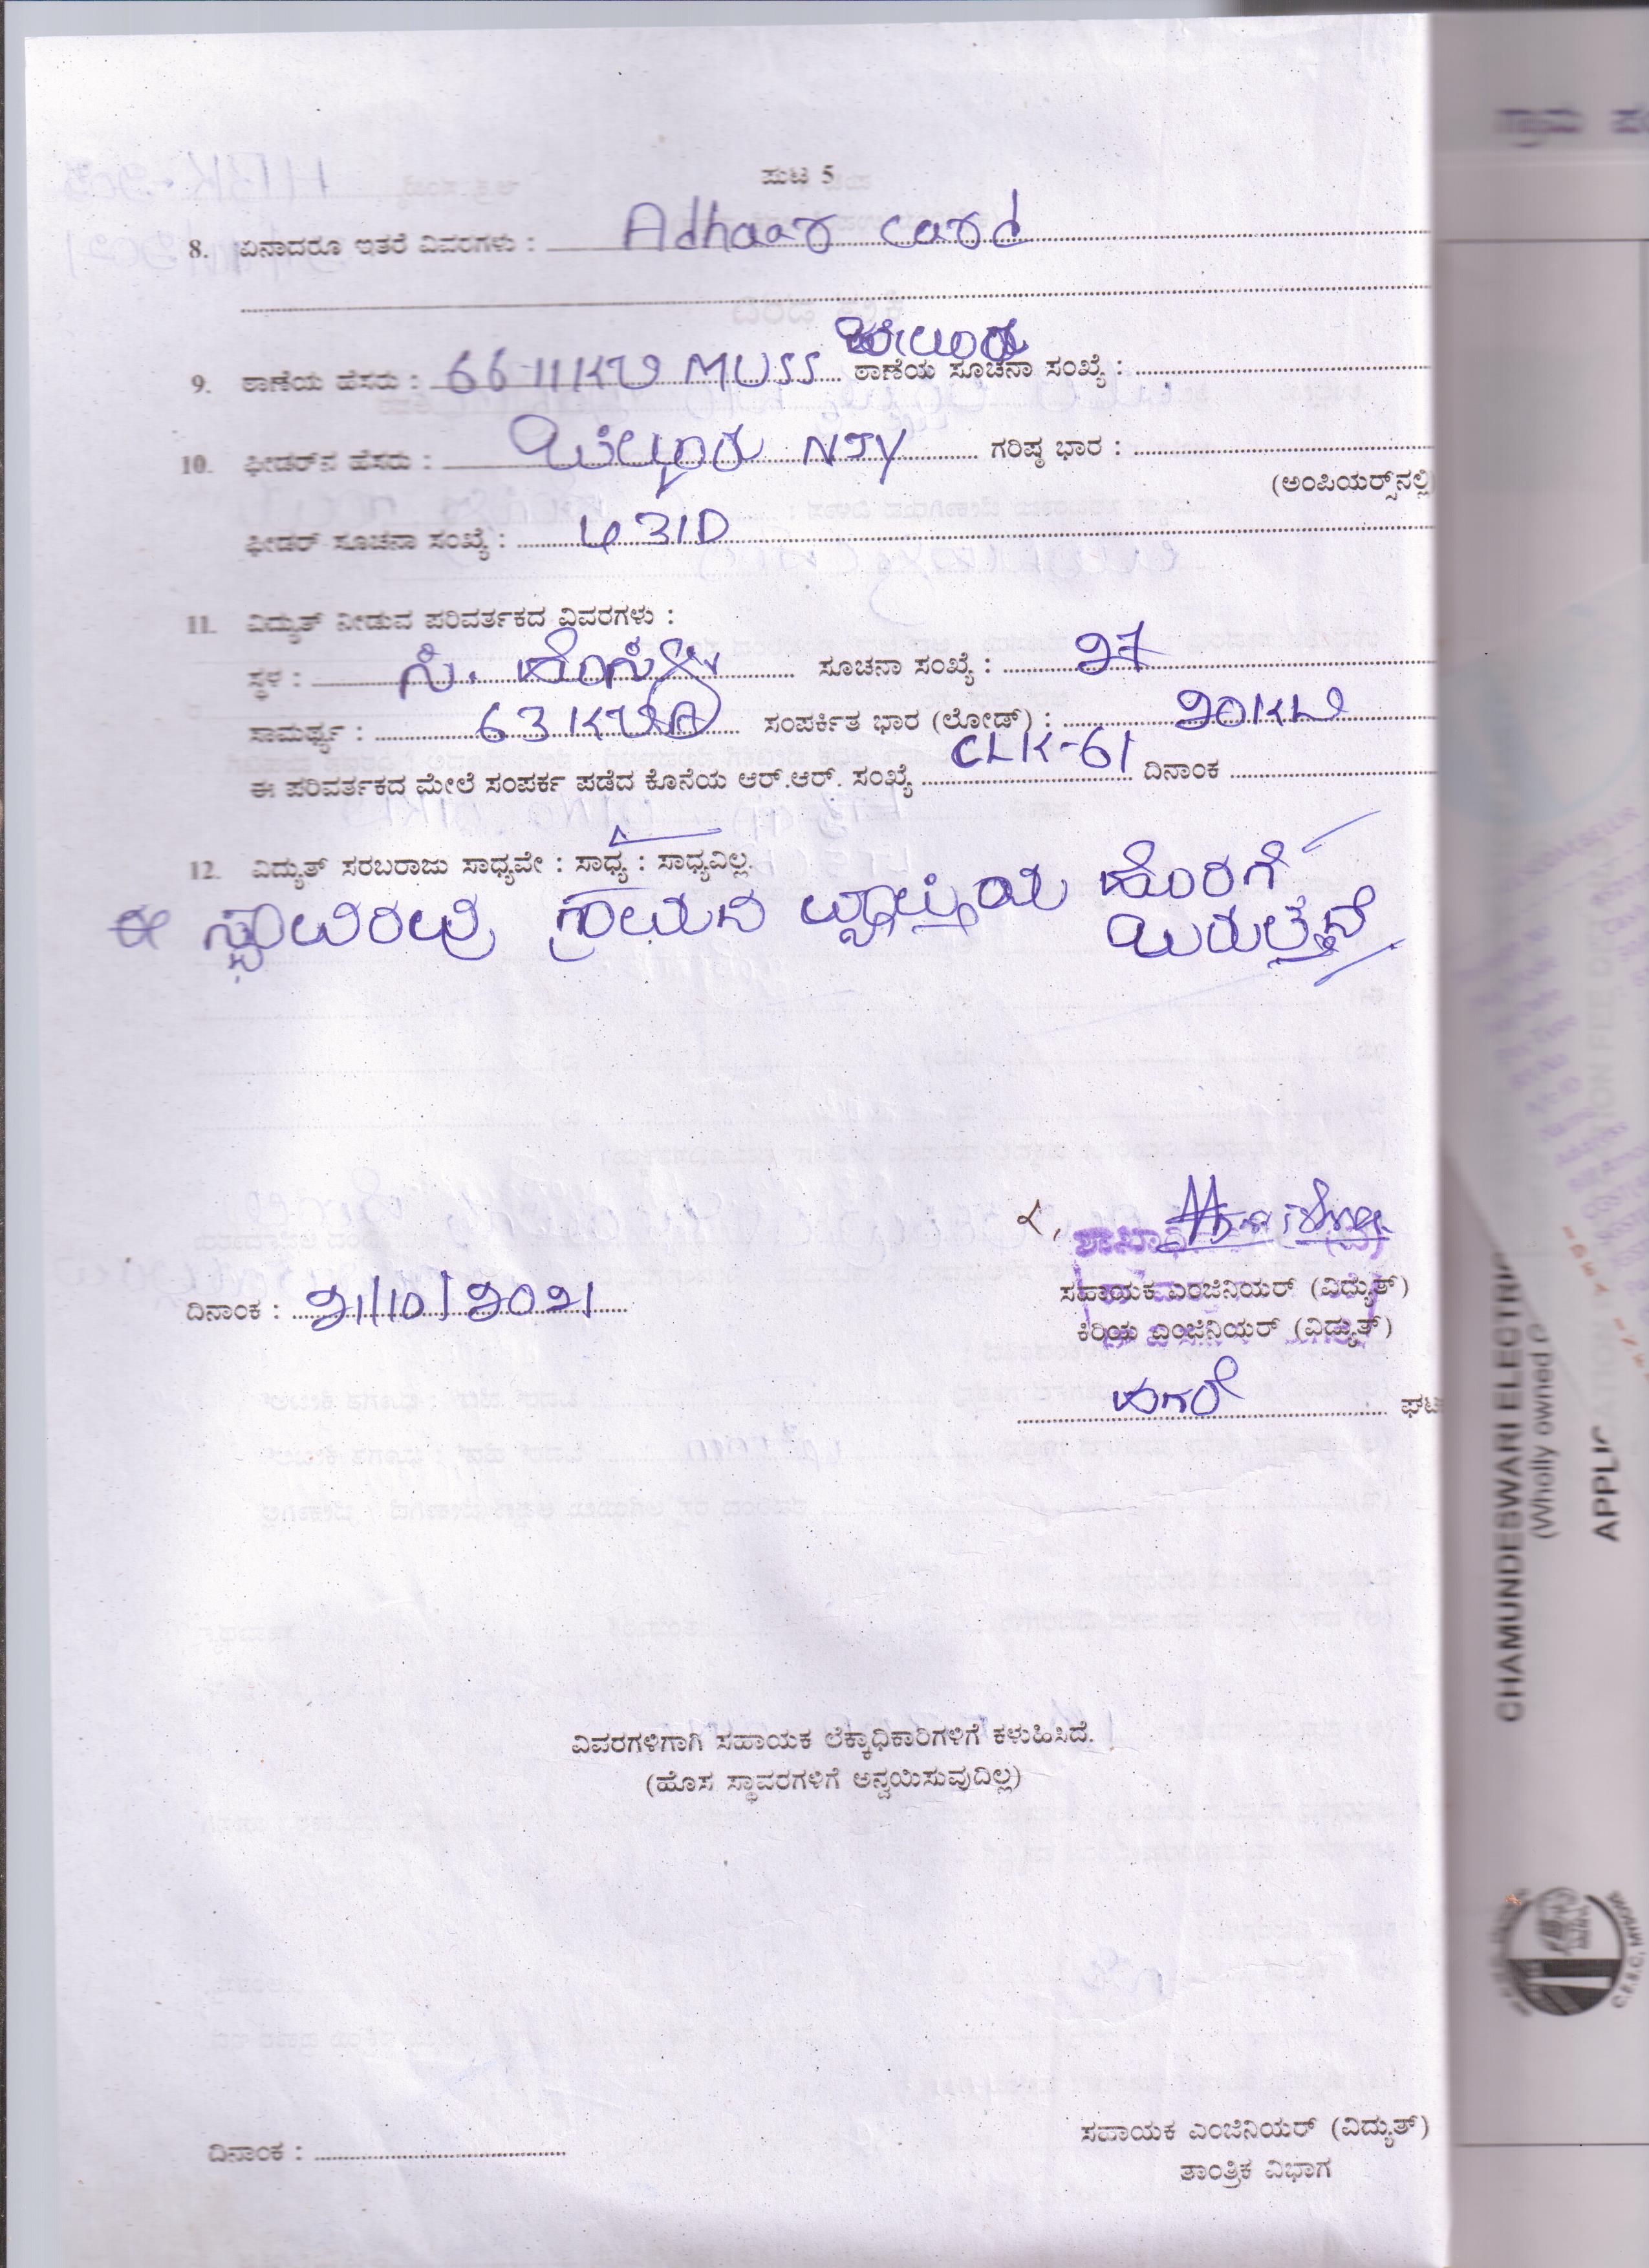 ಪುಟ 5
8. ಏನಾದರೂ ಇತರೆ ವಿವರಗಳು : Adhaar card
9. ಠಾಣೆಯ ಹೆಸರು : 66-11KV MUSS ಬೇಲೂರು ಠಾಣೆಯ ಸೂಚನಾ ಸಂಖ್ಯೆ :
10. ಫೀಡರ್‌ನ ಹೆಸರು : NJY ಗರಿಷ್ಠ ಭಾರ :
(ಅಂಪಿಯರ್ಸ್‌ನಲ್ಲಿ
ಫೀಡರ್ ಸೂಚನಾ ಸಂಖ್ಯೆ :
11. ವಿದ್ಯುತ್ ನೀಡುವ ಪರಿವರ್ತಕದ ವಿವರಗಳು :
ಸ್ಥಳ : ಸಿ. ಹೊಸಳ್ಳಿ ಸೂಚನಾ ಸಂಖ್ಯೆ : ೨7
ಸಾಮರ್ಥ್ಯ : 63 KVA ಸಂಪರ್ಕಿತ ಭಾರ (ಲೋಡ್) :
ಈ ಪರಿವರ್ತಕದ ಮೇಲೆ ಸಂಪರ್ಕ ಪಡೆದ ಕೊನೆಯ ಆರ್.ಆರ್. ಸಂಖ್ಯೆ CLK-61 ದಿನಾಂಕ
12. ವಿದ್ಯುತ್ ಸರಬರಾಜು ಸಾಧ್ಯವೇ : ಸಾಧ್ಯ : ಸಾಧ್ಯವಿಲ್ಲ.
ಈ ಸ್ಥಾವರವು ಗ್ರಾಮದ ವ್ಯಾಪ್ತಿಯ ಹೊರಗೆ
ಬರುತ್ತದೆ
ದಿನಾಂಕ : ೨1/10/೨0೨1
ಸಹಾಯಕ ಎಂಜಿನಿಯರ್ (ವಿದ್ಯುತ್)
ಕಿರಿಯ ಎಂಜಿನಿಯರ್ (ವಿದ್ಯುತ್)
ಹಗರೆ ಘಟ
ವಿವರಗಳಿಗಾಗಿ ಸಹಾಯಕ ಲೆಕ್ಕಾಧಿಕಾರಿಗಳಿಗೆ ಕಳುಹಿಸಿದೆ.
(ಹೊಸ ಸ್ಥಾವರಗಳಿಗೆ ಅನ್ವಯಿಸುವುದಿಲ್ಲ)
ದಿನಾಂಕ :
ಸಹಾಯಕ ಎಂಜಿನಿಯರ್ (ವಿದ್ಯುತ್)
ತಾಂತ್ರಿಕ ವಿಭಾಗ
CHAMUNDESWARI ELECTRI
(Wholly owned
APPLIC